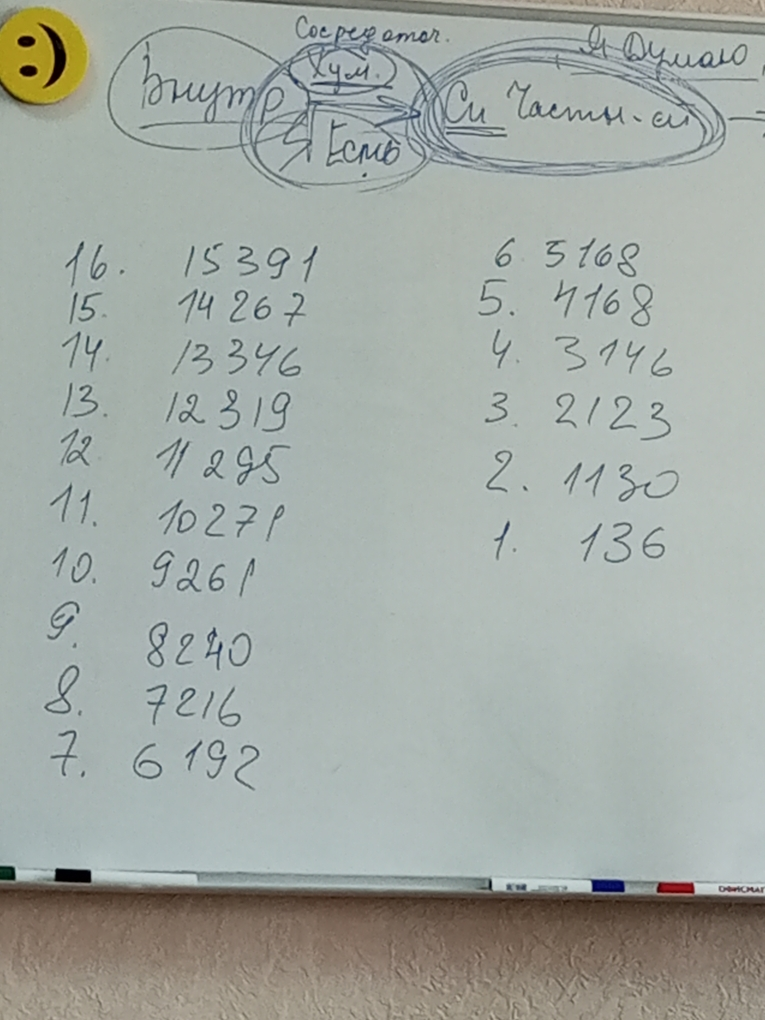 Сосредоточ.
Внутр
Хум.
Есмь
Си Частн-си
Я Думаю
16. 15391
15. 14267
14. 13346
13. 12319
12. 11295
11. 10271
10. 9261
9. 8240
8. 7216
7. 6192
6 5168
5. 4168
4. 3146
3. 2123
2. 1130
1. 136